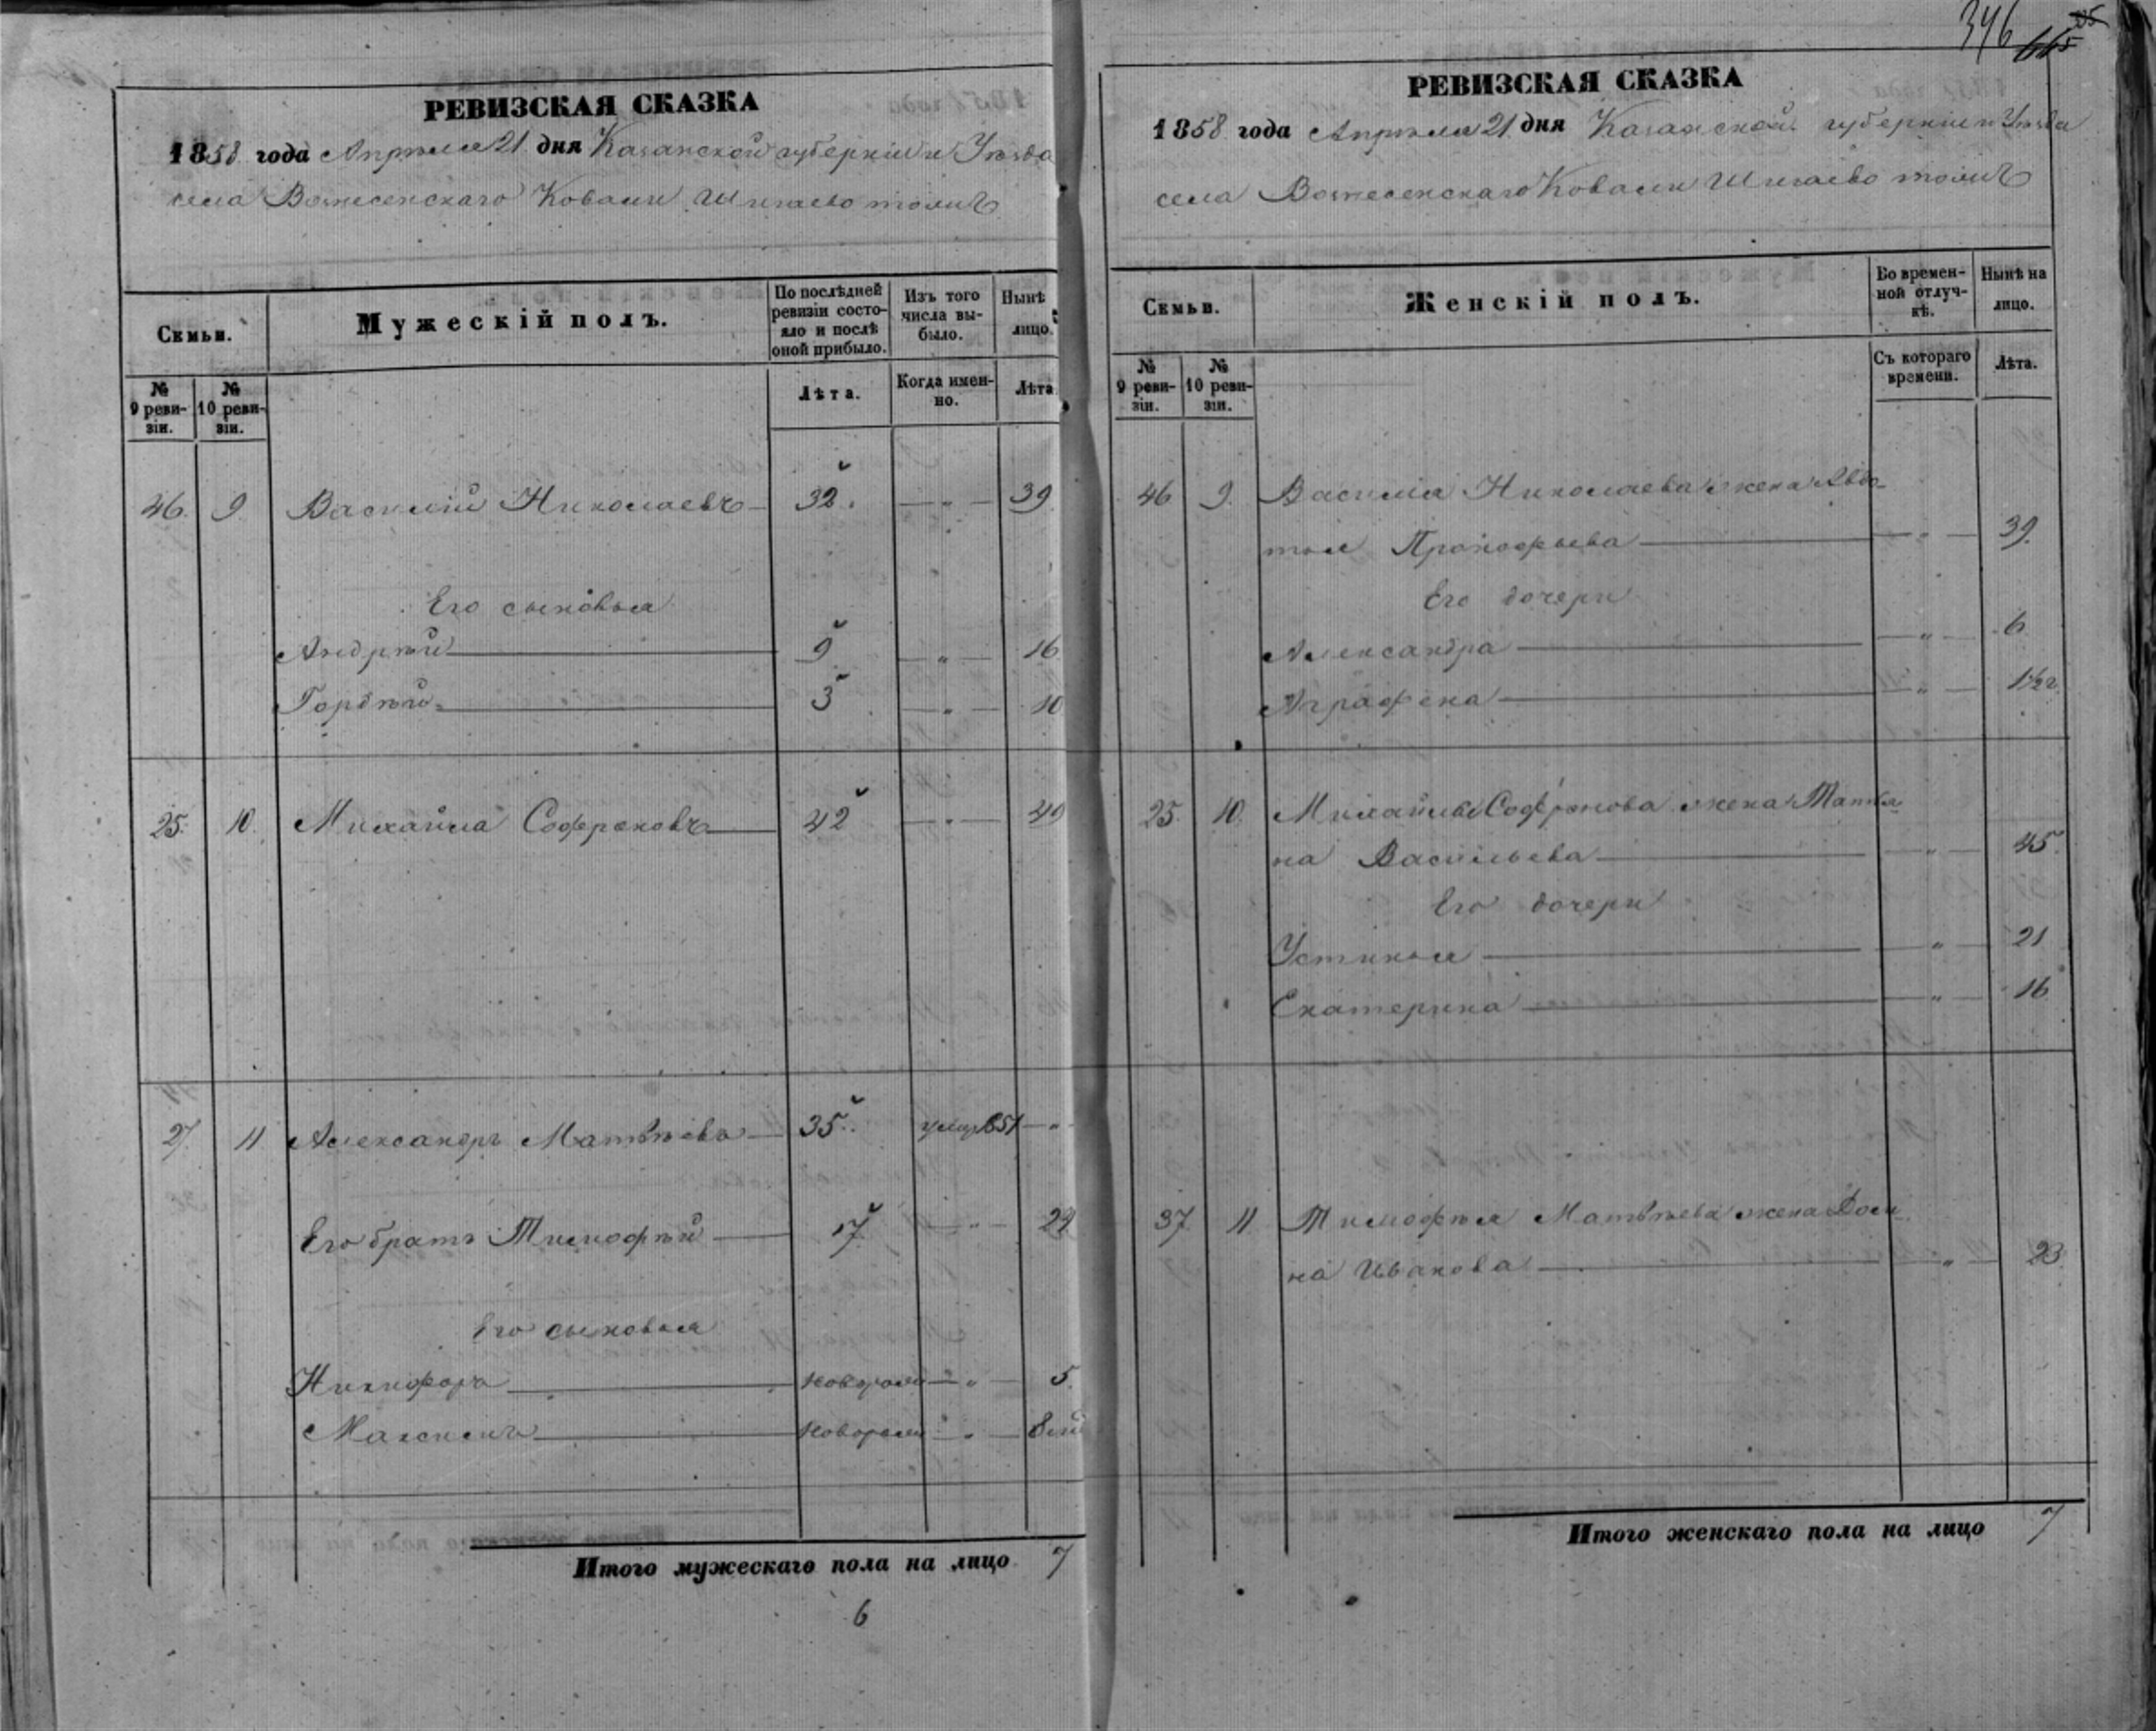 346
РЕВИЗСКАЯ СКАЗКА
1858 года Апрѣля 21 дня Казанской губерніи и Уѣзда
села Вознесенскаго Ковали Шигаево тожъ
Скмьи.
Мужескій полъ.
По послѣдней ревизіи состояло и послѣ оной прибыло.
Изъ того числа выбыло.
Нынѣ лицо.
№ 9 ревизіи.
№ 10 ревизіи.
Лѣта.
Когда именно.
Лѣта
46. 9. Василій Николаевъ 32. — " — 39.
Его сыновья
Андрѣй 9 — " — 16
Гордѣй 3 — " — 10
25. 10. Михайла Софроновъ 42 — " — 49
27. 11 Александръ Матвѣевъ 35. 851 — "
Его братъ Тимофѣй 17. — " — 24
Его сыновья
Никифоръ новорож — " — 5.
Максимъ новорож — " — 8
Итого мужескаго пола на лицо 7
6
РЕВИЗСКАЯ СКАЗКА
1858 года Апрѣля 21 дня Казанской губерніи и Уѣзда
села Вознесенскаго Ковали Шигаево тожъ
Скмьи.
Женскій полъ.
Во временной отлучкѣ.
Нынѣ на лицо.
№ 9 ревизіи.
№ 10 ревизіи.
Съ котораго времени.
Лѣта.
46 9. Василія Николаева жена Авдо-
тья Прокофьева — " — 39.
Его дочери
Александра — " — 6
Аграфена — " — 1½ г.
25. 10. Михайлы Софронова жена Татья-
на Васильева — " — 45.
Его дочери
Устинья — " — 21
Екатерина — " — 16
37. 11 Тимофѣя Матвѣева жена Дом-
на Иванова — " — 23.
Итого женскаго пола на лицо 7